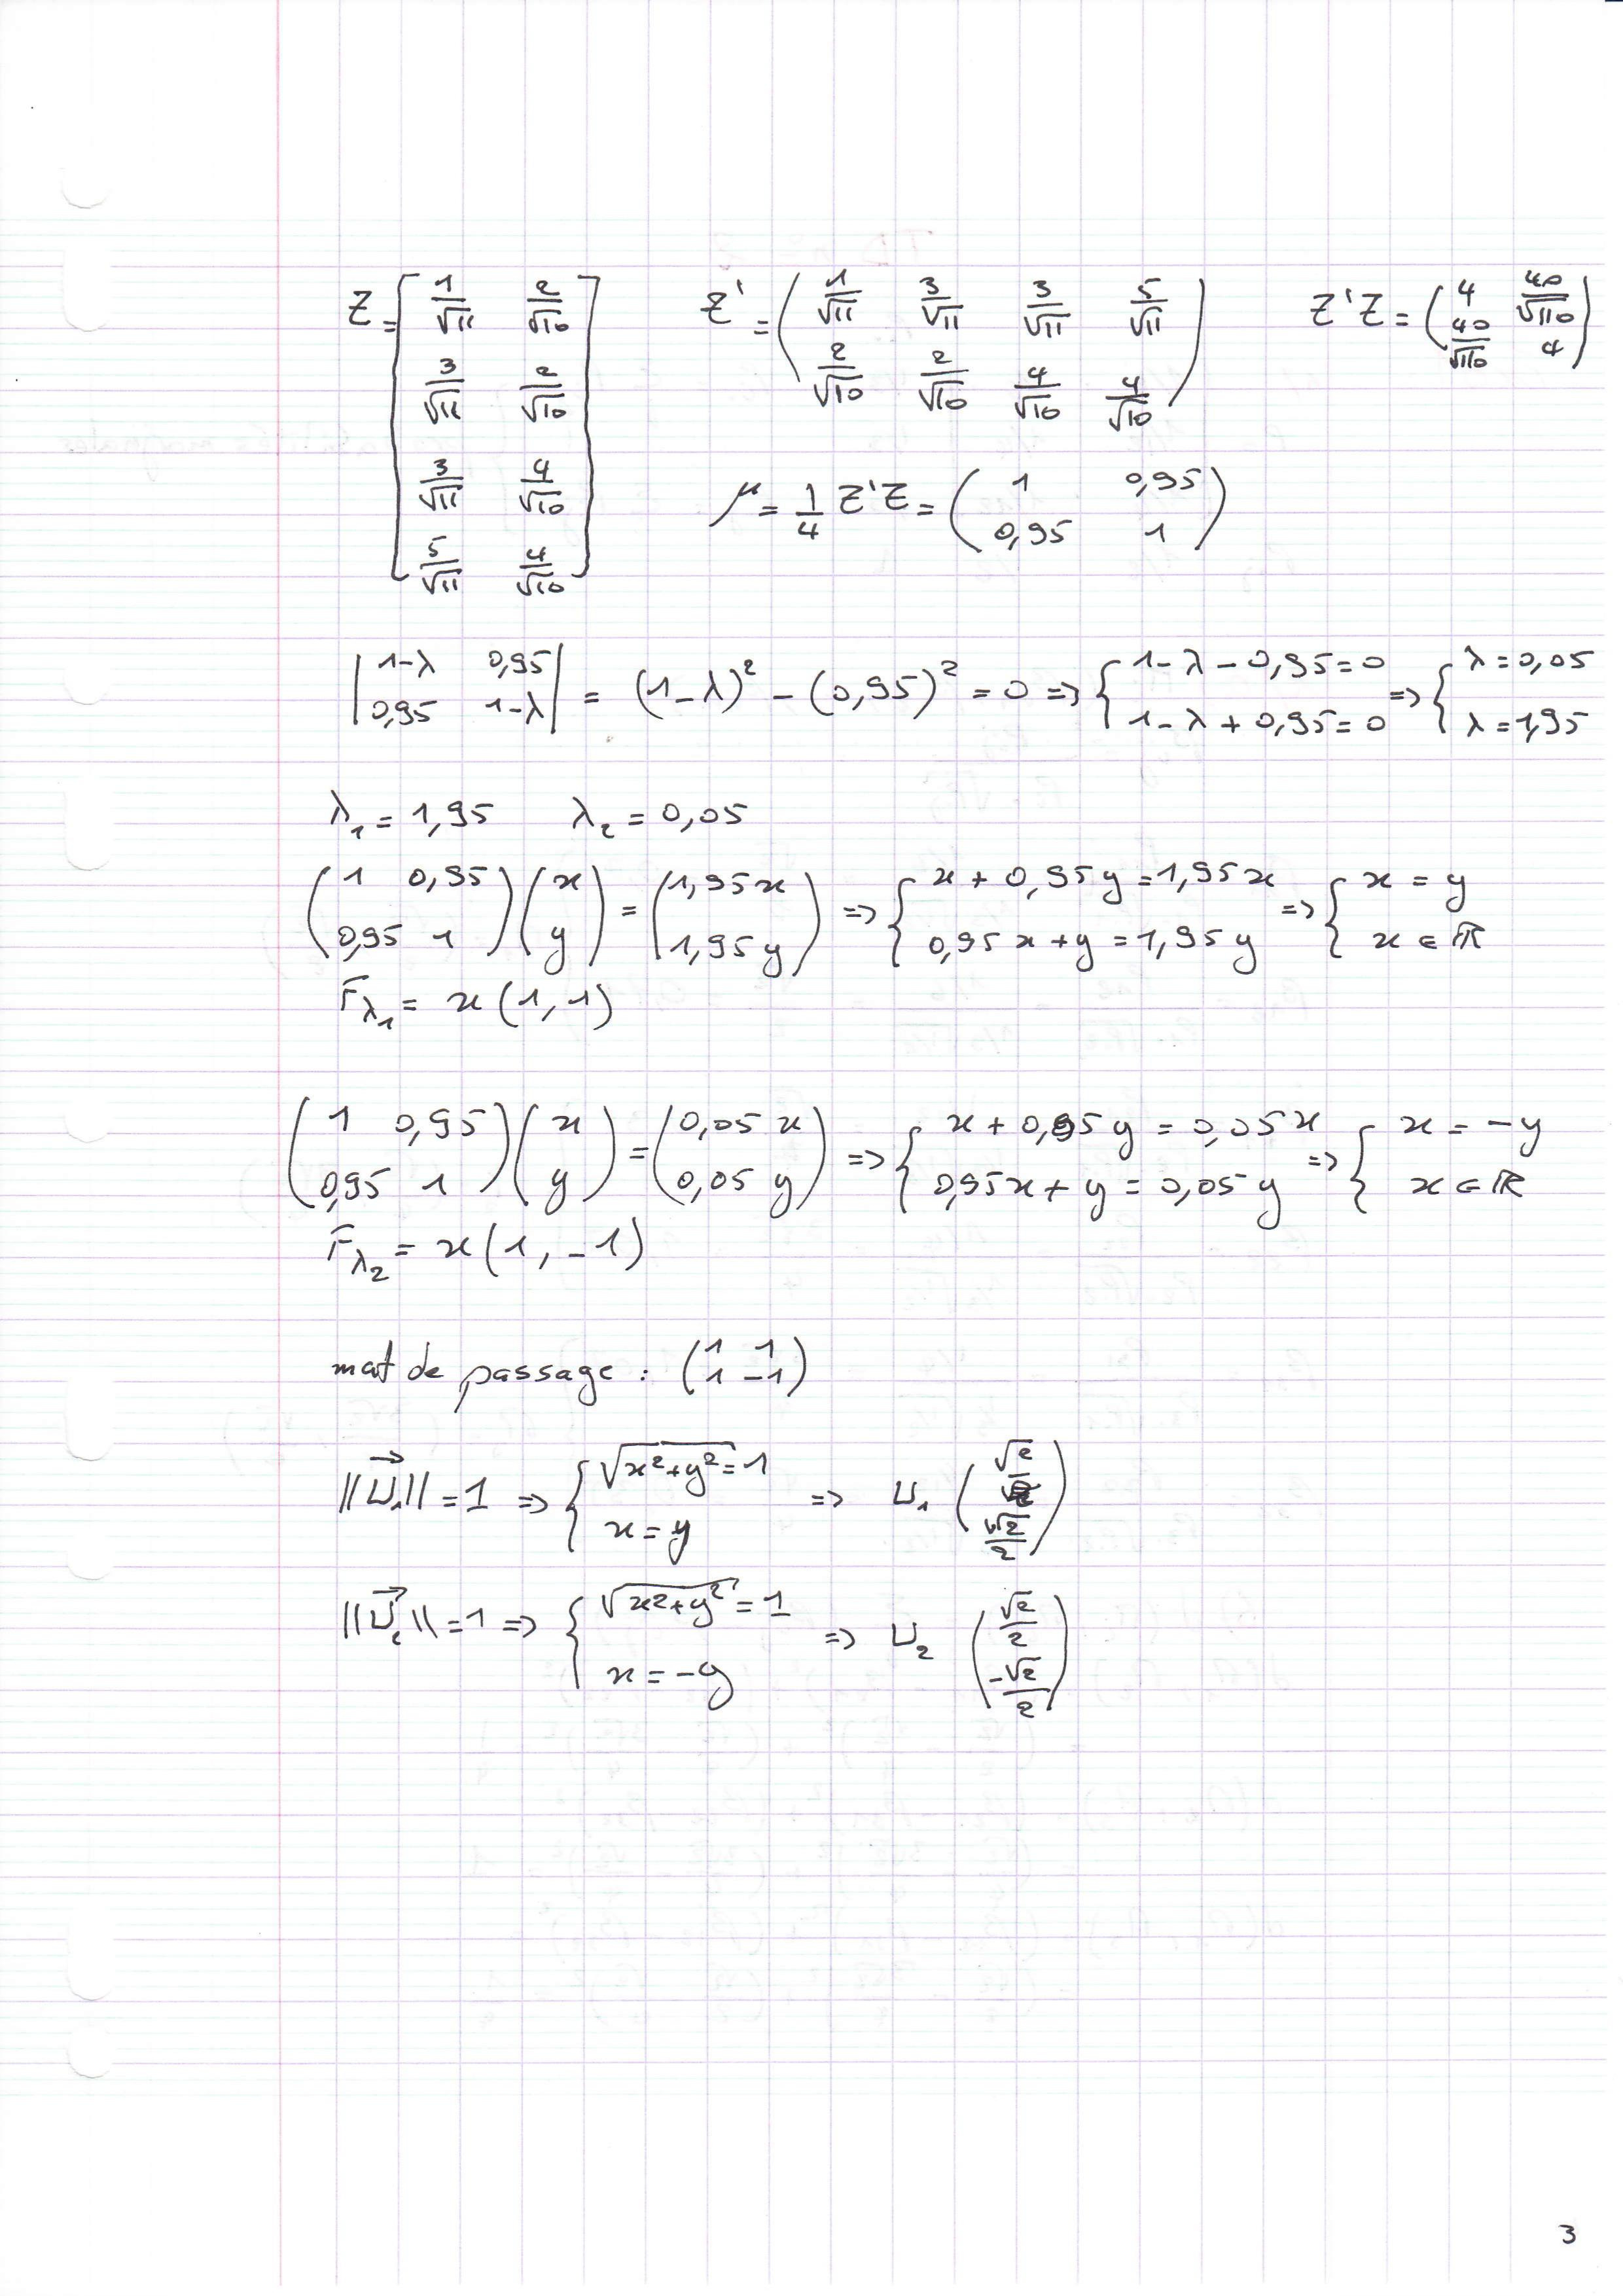 Z = [ 1/√11 2/√10 ; 3/√11 2/√10 ; 3/√11 4/√10 ; 5/√11 4/√10 ]
Z' = ( 1/√11 3/√11 3/√11 5/√11 ; 2/√10 2/√10 4/√10 4/√10 )
Z'Z = ( 4 40/√110 ; 40/√110 4 )
μ = 1/4 Z'Z = ( 1 0,95 ; 0,95 1 )
| 1-λ 0,95 ; 0,95 1-λ | = (1-λ)² - (0,95)² = 0 => { 1-λ-0,95=0 ; 1-λ+0,95=0 => { λ=0,05 ; λ=1,95
λ₁ = 1,95 λ₂ = 0,05
( 1 0,95 ; 0,95 1 ) ( x ; y ) = ( 1,95x ; 1,95y ) => { x + 0,95y = 1,95x ; 0,95x + y = 1,95y => { x = y ; x ∈ ℝ
Fλ₁ = x(1, 1)
( 1 0,95 ; 0,95 1 ) ( x ; y ) = ( 0,05 x ; 0,05 y ) => { x + 0,95y = 0,05x ; 0,95x + y = 0,05y => { x = -y ; x ∈ ℝ
Fλ₂ = x(1, -1)
mat de passage : ( 1 1 ; 1 -1 )
||U₁|| = 1 => { √x²+y² = 1 ; x = y => U₁ ( √2/2 ; √2/2 )
||U₂|| = 1 => { √x²+y² = 1 ; x = -y => U₂ ( √2/2 ; -√2/2 )
3